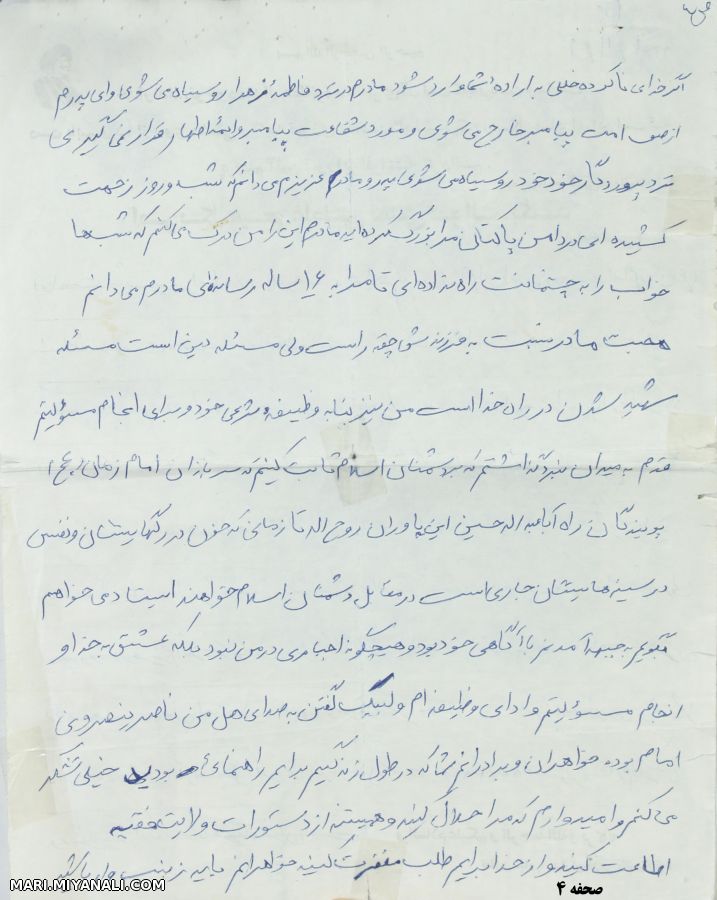 اگر خدای ناکرده خللی به اراده شما وارد شود مادرم در نزد فاطمهٔ زهرا روسیاه می شوی وای پدرم
از صف امت پیامبر خارج می شوی و مورد شفاعت پیامبر وائمه اطهار قرار نمی گیری
نزد پروردگار خود خود روسیاه می شوی پدر و مادر عزیزم می دانم که شب و روز زحمت
کشیده اید در دامن پاکتان مرا بزرگ کرده اید مادرم این را من درک می کنم که شب ها
خواب را به چشمانت راه نداده ای تا مرا به ۱۶ ساله رسانده ای مادرم می دانم
محبت مادر نسبت به فرزندش چقدر است ولی مسئله دین است مسئله
شهید شدن در راه خدا است من نیز بنا به وظیفه شرعی خود و برای انجام مسؤلیتم
قدم به میدان نبرد گذاشتم که به دشمنان اسلام ثابت کنیم که سربازان امام زمان (عج)
پویندگان راه اباعبدالله حسین این یاوران روح الله تا زمانی که خون در رگهایشان و نفس
در سینه هایشان جاری است در مقابل دشمنان اسلام خواهند ایستاد می خواهم
بگویم به جبهه آمدنم با آگاهی خود بود و هیچگونه اجباری در من نبود بلکه عشق به خدا و
انجام مسؤلیتم و ادای وظیفه ام و لبیک گفتن به صدای هل من ناصر ینصرونی
امام بوده خواهران و برادرانم شما که در طول زندگیم برایم راهنمائی بودید خیلی تشکر
می کنم و امیدوارم که مرا حلال کنید و همیشه از دستورات ولایت فقیه
اطاعت کنید و از خدا برایم طلب مغفرت کنید خواهرانم باید زینب وار باشید
صحفه ۴
MARI.MIYANALI.COM